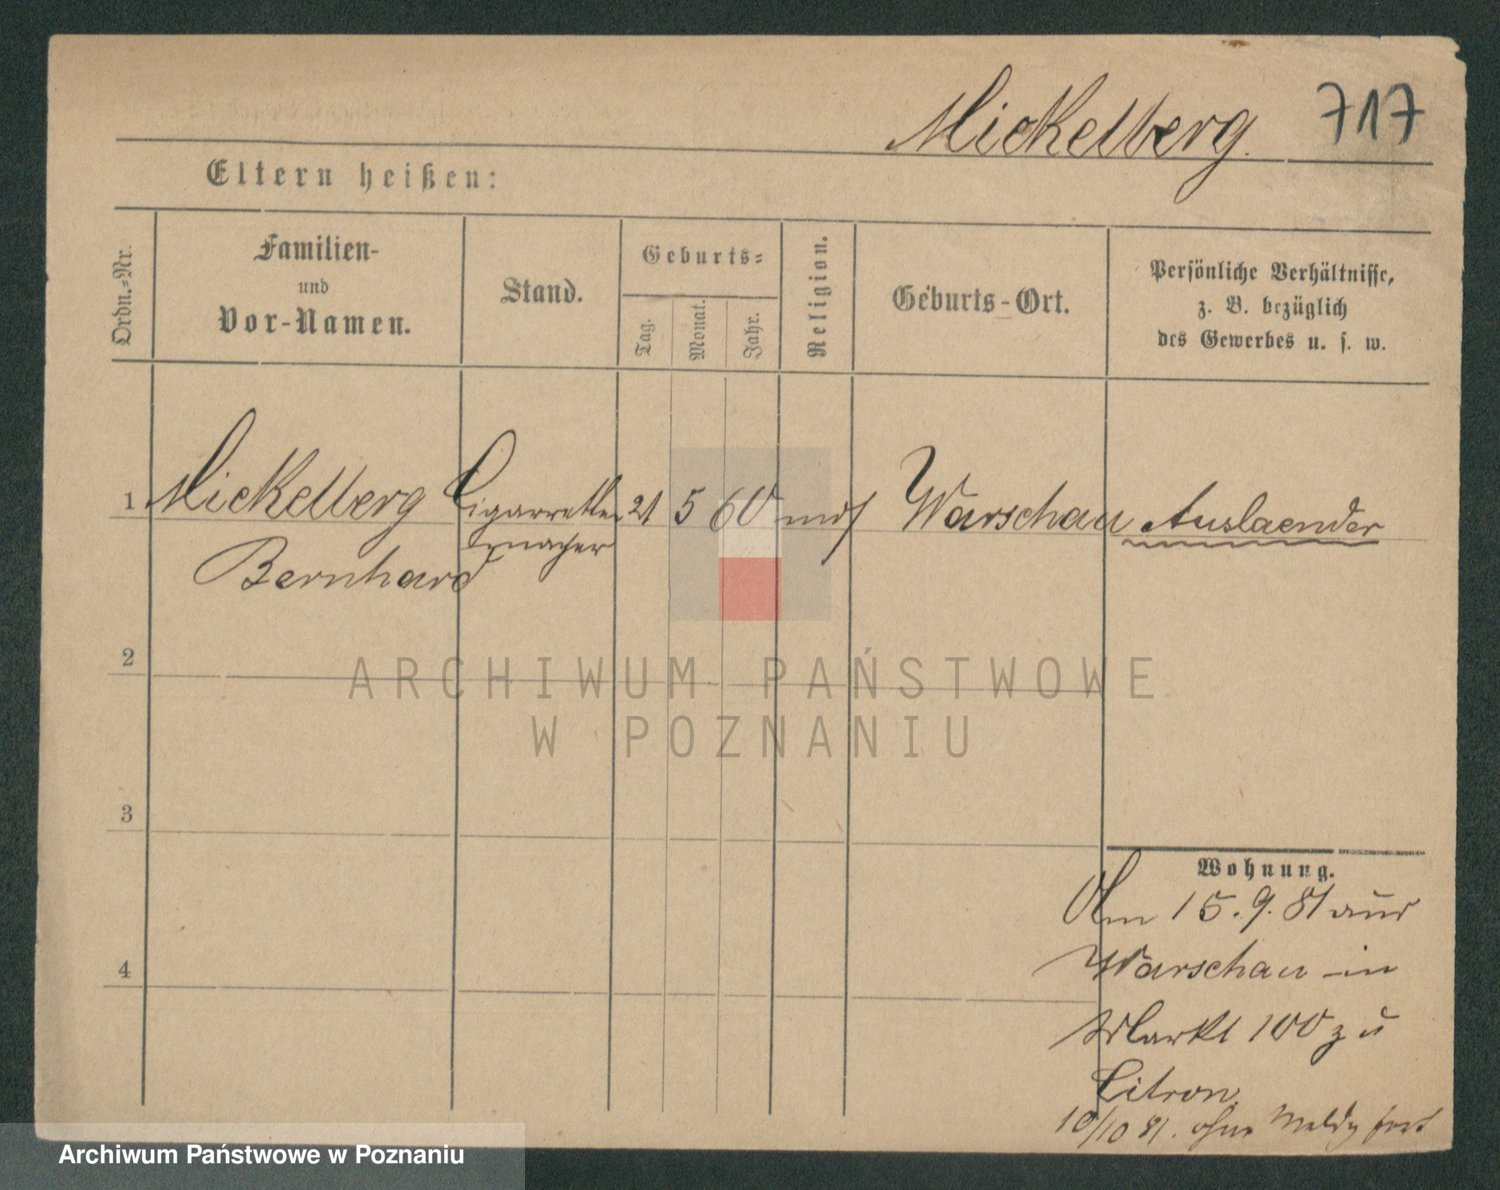 Mickelberg. 717
Eltern heißen:
Ordn.-Nr.
Familien-
und
Vor-Namen.
Stand.
Geburts-
Tag.
Monat.
Jahr.
Religion.
Geburts-Ort.
Persönliche Verhältnisse,
z. B. bezüglich
des Gewerbes u. s. w.
1 Mickelberg Cigarretten 21 5 60 mos Warschau Auslaender
macher
Bernhard
2
ARCHIWUM PAŃSTWOWE
W POZNANIU
3
Wohnung.
Am 15. 9. 81 aus
4 Warschau in
Markt 100 zu
Citron.
10/10 81. ohne Meldg fort
Archiwum Państwowe w Poznaniu